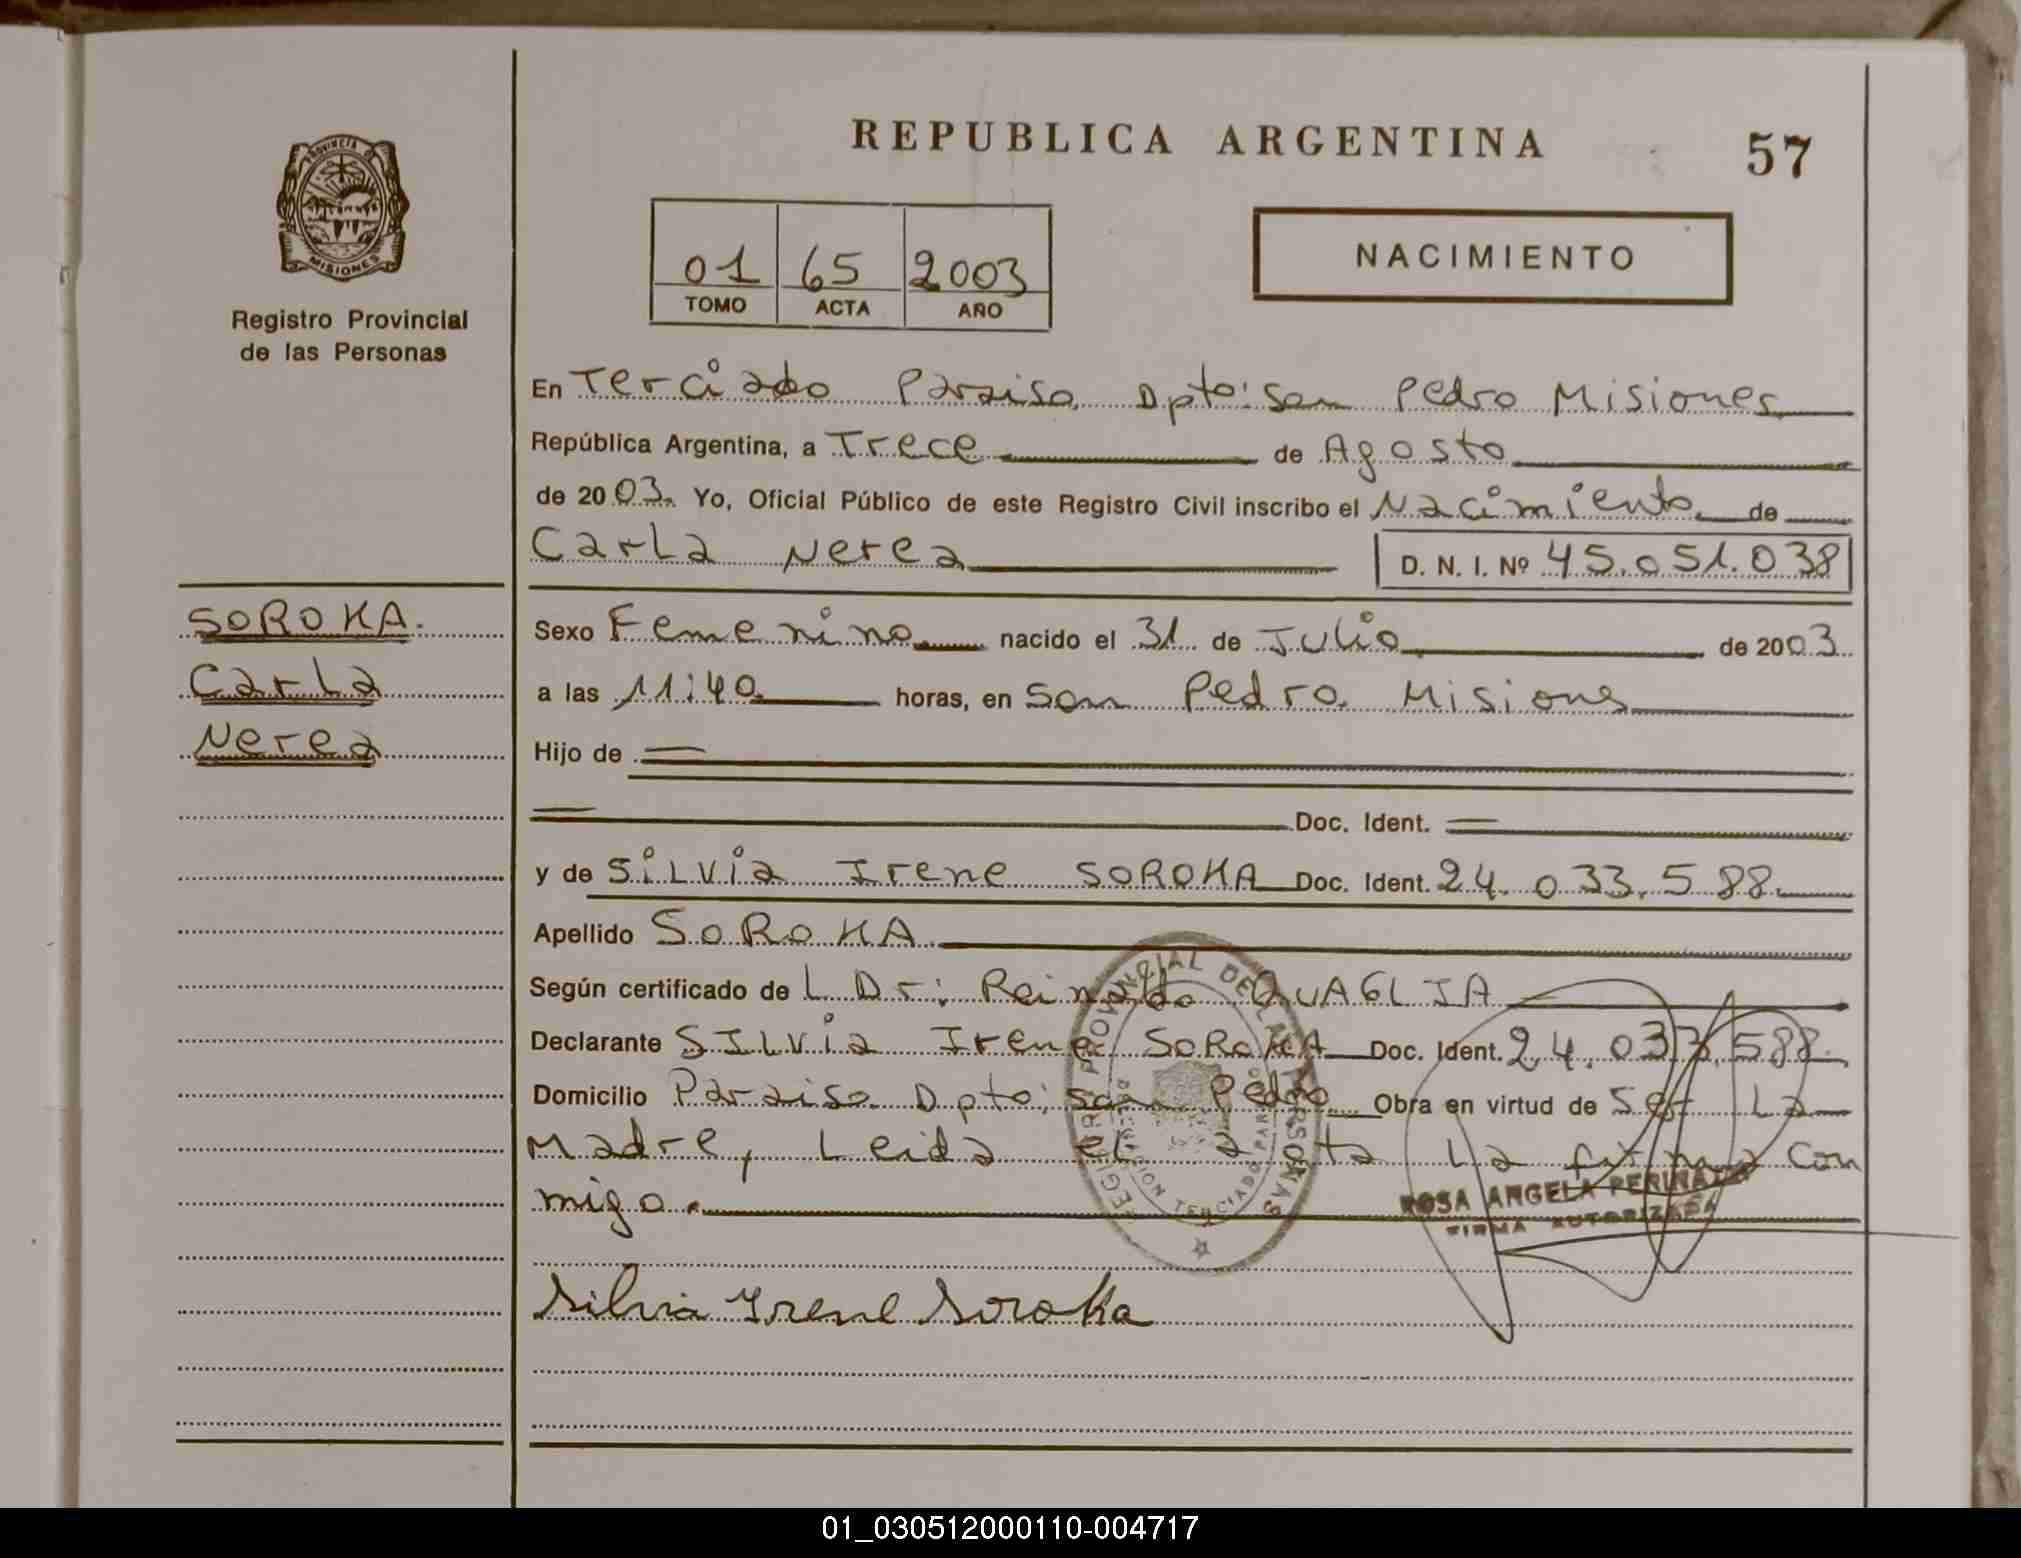 REPUBLICA ARGENTINA
57
PROVINCIA DE
MISIONES
Registro Provincial
de las Personas
01 65 2003
TOMO ACTA AÑO
NACIMIENTO
En Terciado Paraiso Dpto: San Pedro Misiones
República Argentina, a Trece de Agosto
de 2003. Yo, Oficial Público de este Registro Civil inscribo el Nacimiento de
Carla Nerea D. N. I. Nº 45.051.038
SOROKA.
Carla
Nerea
Sexo Femenino nacido el 31 de Julio de 2003
a las 11:40 horas, en San Pedro. Misiones
Hijo de
Doc. Ident.
y de Silvia Irene SOROKA Doc. Ident. 24.033.588.
Apellido SOROKA
Según certificado de L Dr: Reinaldo QUAGLIA
Declarante SILVia Irene SOROKA Doc. Ident. 24.033.588.
Domicilio Paraiso Dpto: San Pedro Obra en virtud de Ser La
Madre, Leida el acta La firma Con
migo.
REGISTRO PROVINCIAL DE LAS PERSONAS
ROSA ANGELA
FIRMA AUTORIZADA
Silvia Irene Soroka
01_030512000110-004717